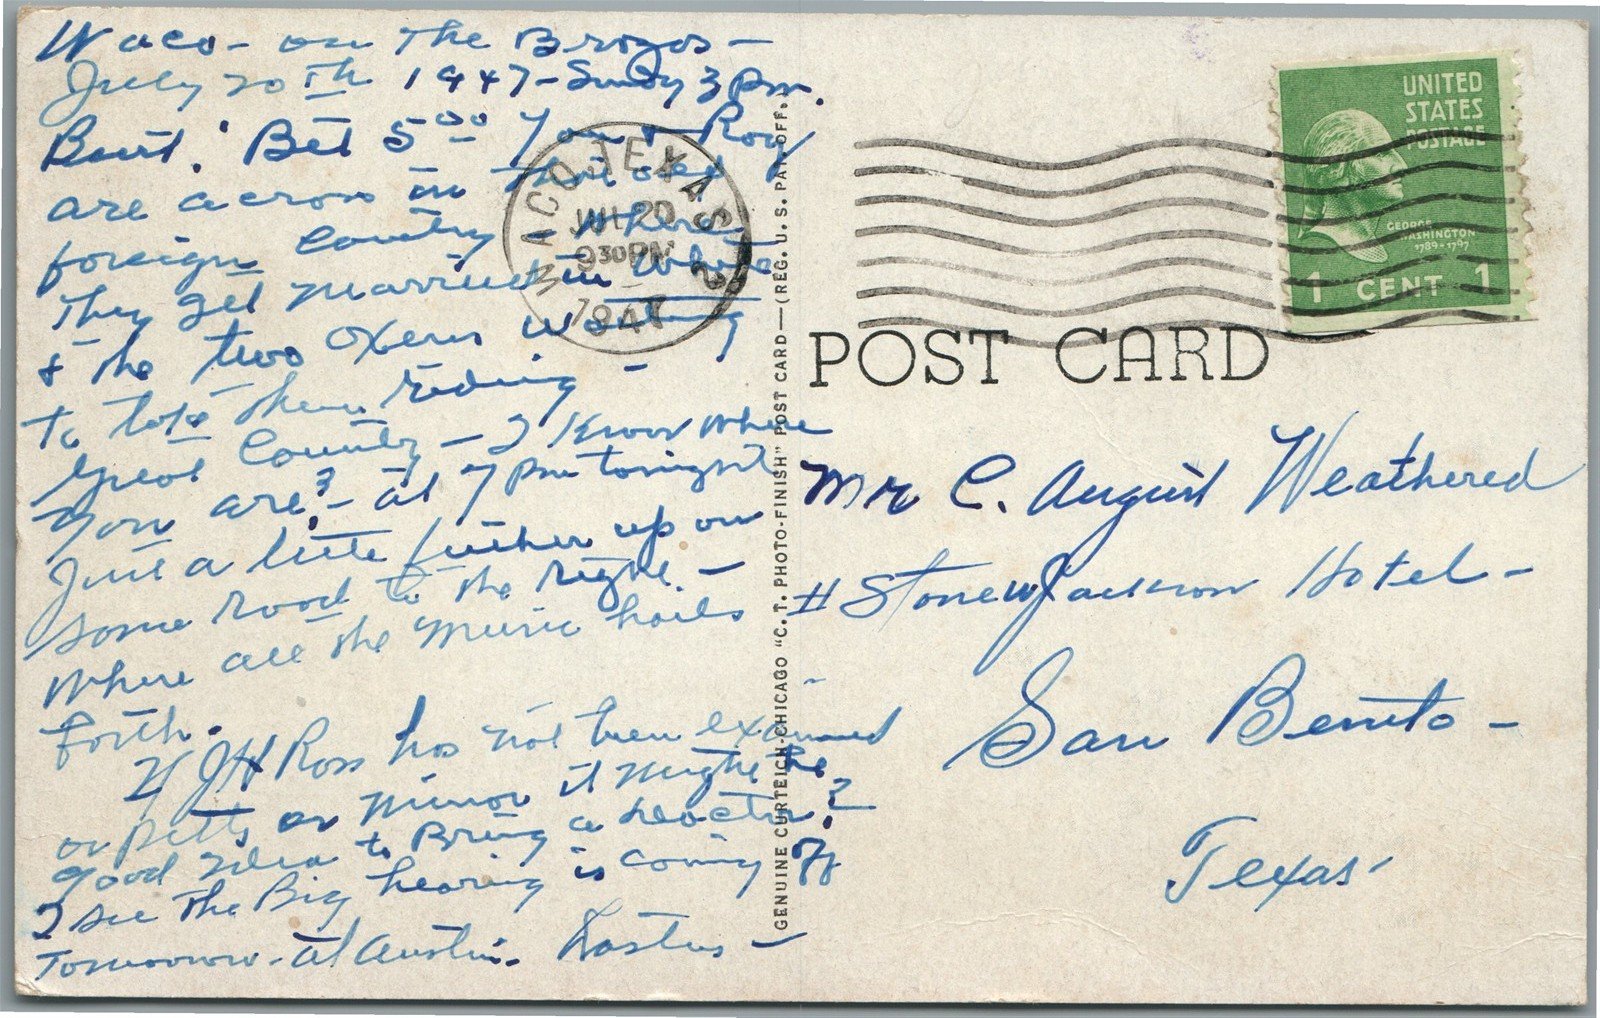 Waco - on The Brazos -
July 20th 1947 - Sunday 3 pm.
Bet 5 00 you & Roy
are across in that old
foreign Country - where
They get married in white
& the two Oxens waiting
to tote them riding -
Great Country - I Know where
you are? - at 7 pm tonight
Just a little further up on
some road to the right -
where all the music hails
forth.
If JH Ross has not been examined
or Petts or Minor it might be
good idea to Bring a doctor?
I see The Big hearing is coming off
Tomorrow - at Austin.
WACO, TEXAS 2
JUL 20
9 30 PM
1947
GENUINE CURTEICH-CHICAGO "C. T. PHOTO-FINISH" POST CARD—(REG. U. S. PAT. OFF.)
UNITED
STATES
POSTAGE
GEORGE
WASHINGTON
1789-1797
1 CENT 1
POST CARD
Mr C. August Weathered
# StonewJackson Hotel -
San Benito -
Texas.